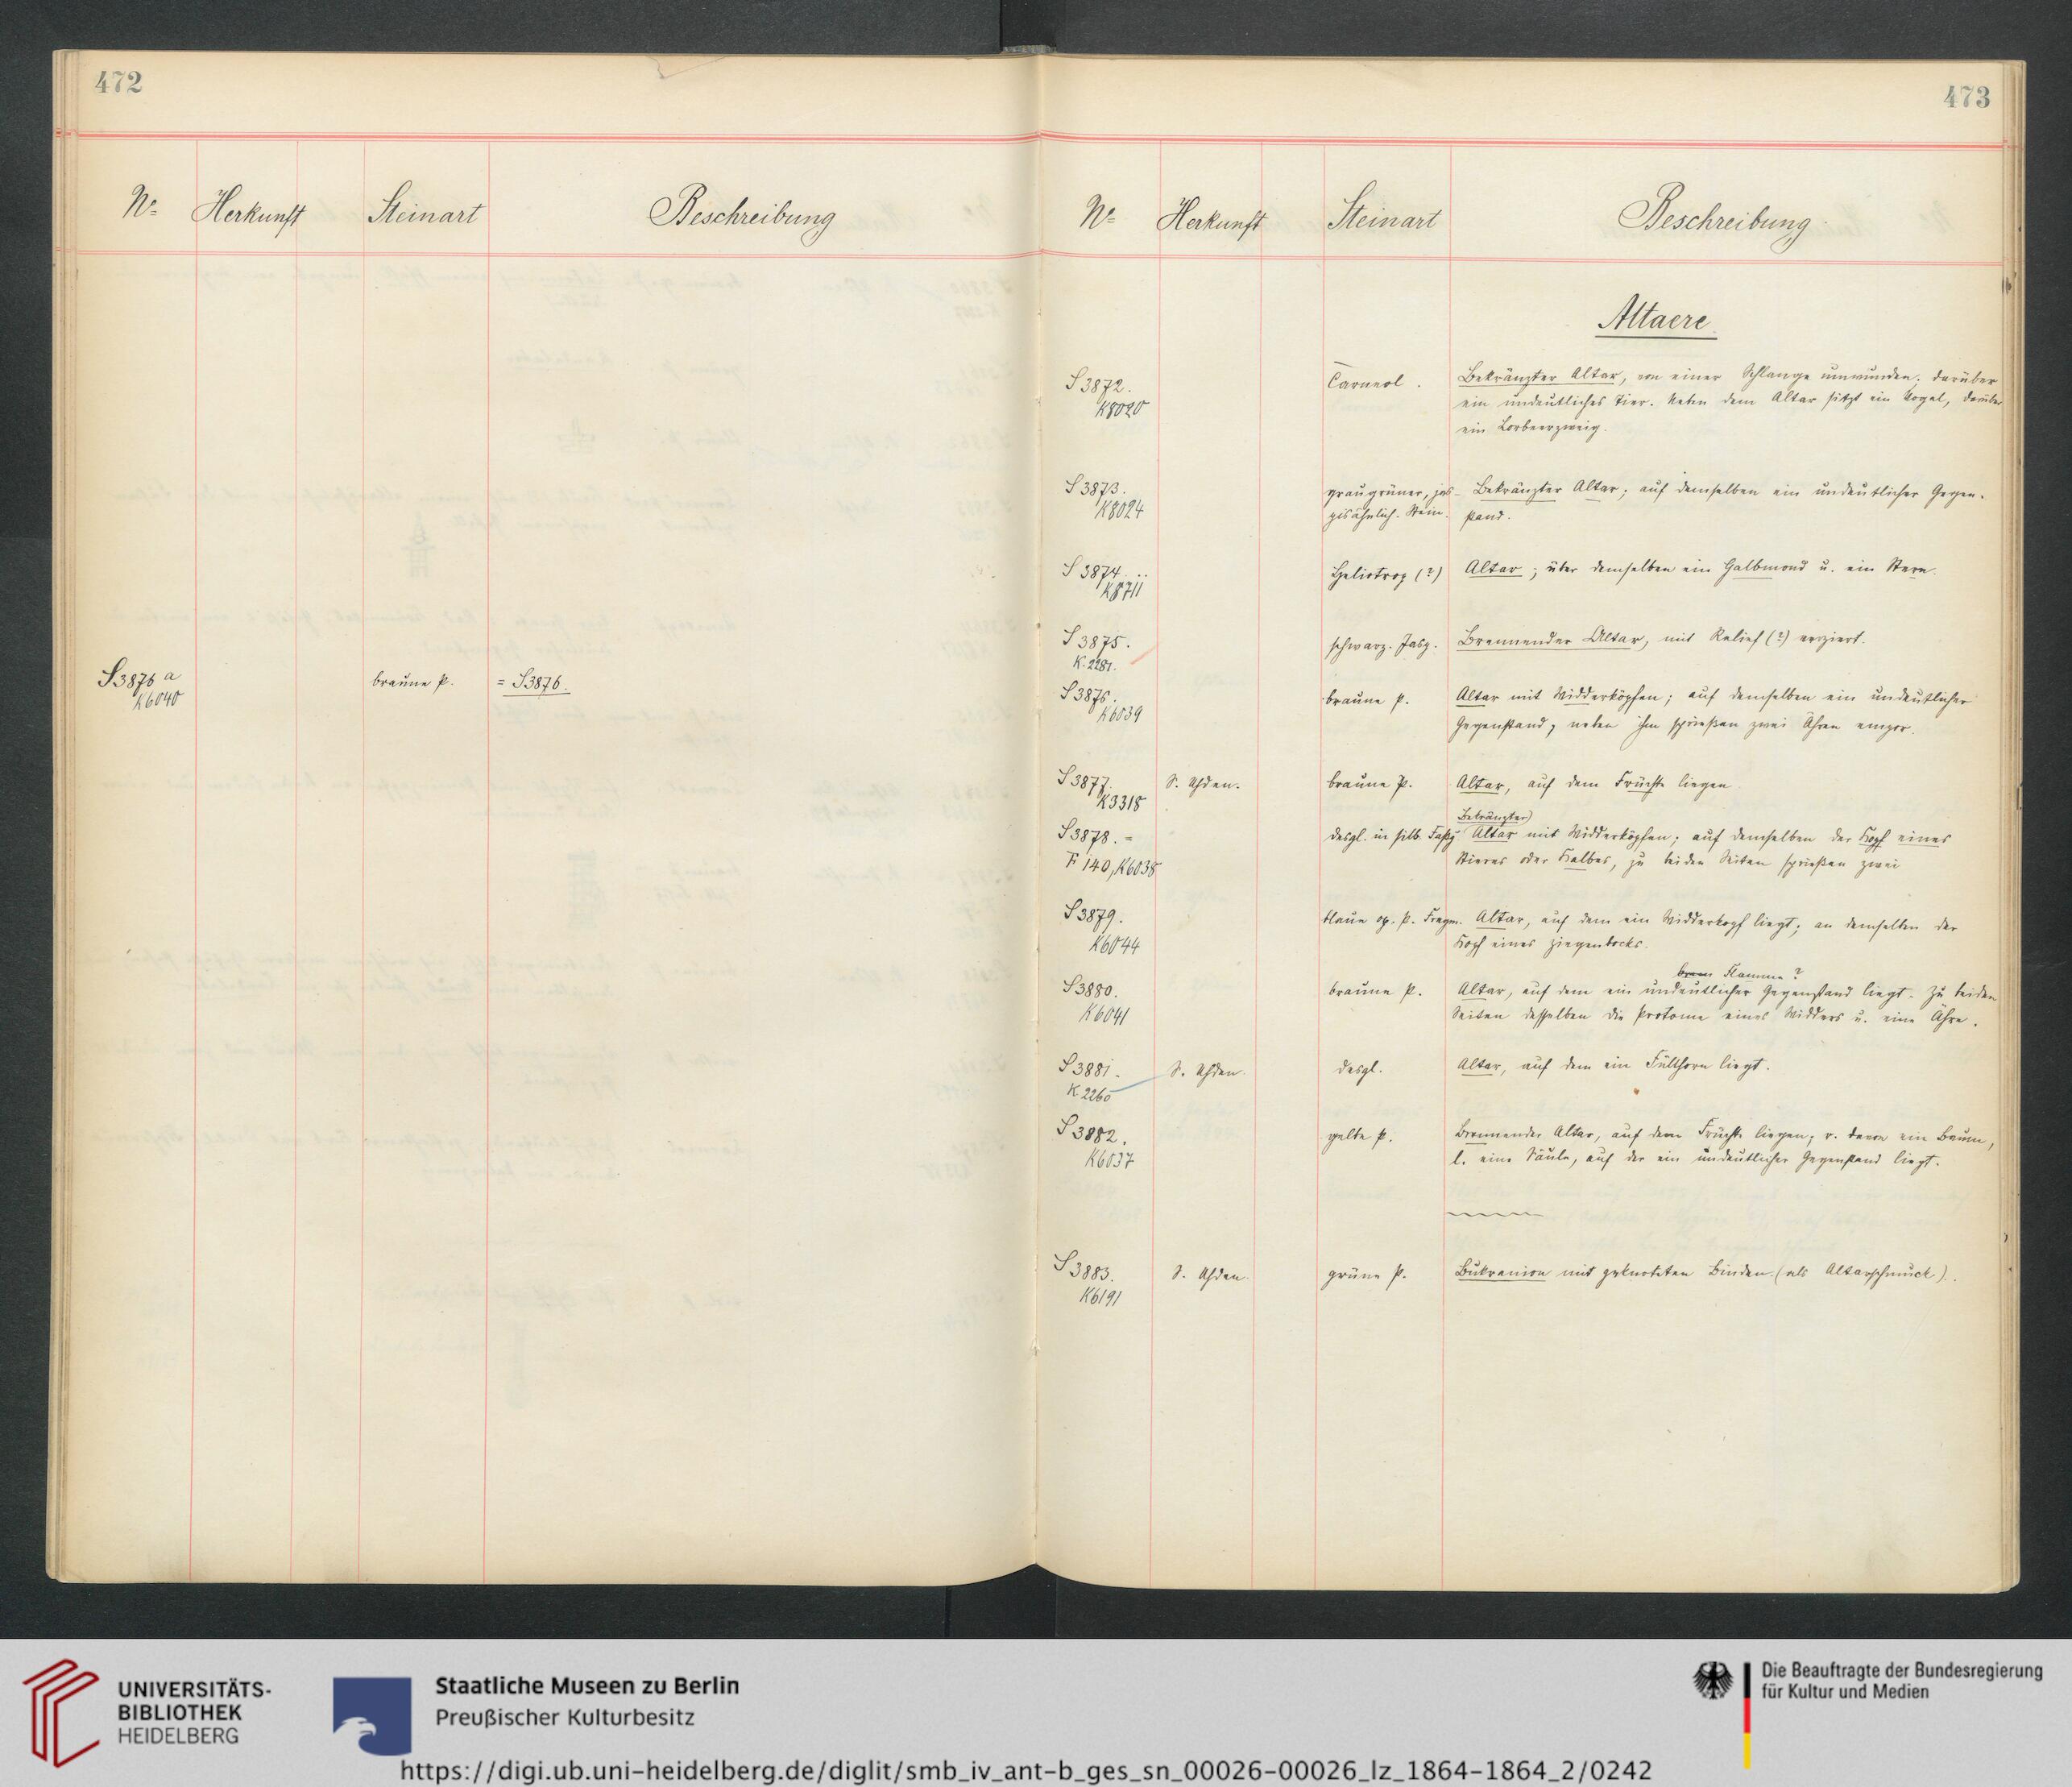 472
Nº Herkunft Steinart Beschreibung
S3876 a braune P. = S3876.
K6040
473
Nº Herkunft Steinart Beschreibung
Altaere.
S3872. Carneol. Bekränzter Altar, von einer Schlange umwunden; darüber
K8020 ein undeutliches Tier. Neben dem Altar sitzt ein Vogel, darüber
ein Lorbeerzweig.
S3873. graugrüner, jas- Bekränzter Altar; auf demselben ein undeutlicher Gegen-
K8024 pisähnlich. Stein. stand.
S3874. Heliotrop (?) Altar; über demselben ein Halbmond u. ein Stern.
K8711
S3875. schwarz. Jasp. Brennender Altar, mit Relief (?) verziert.
K.2281.
S3876. braune P. Altar mit Widderköpfen; auf demselben ein undeutlicher
K6039 Gegenstand; neben ihm sprießen zwei Ähren empor.
S3877. S. Uhden. braune P. Altar, auf dem Früchte liegen
K3318
Bekränzter
S3878. desgl. in silb. Faßg Altar mit Widderköpfen; auf demselben der Kopf eines
F 140, K6038 Stieres oder Kalbes, zu beiden Seiten sprießen zwei
S3879. blaue op. P. Fragm. Altar, auf dem ein Widderkopf liegt; an demselben der
K6044 Kopf eines Ziegenbocks.
Flamme?
S3880. braune P. Altar, auf dem ein undeutlicher Gegenstand liegt. Zu beiden
K6041 Seiten desselben die Protome eines Widders u. eine Ähre.
S3881. S. Uhden. desgl. Altar, auf dem ein Füllhorn liegt.
K2260
S3882. gelbe P. Brennender Altar, auf dem Früchte liegen; r. davon ein Baum,
K6037 l. eine Säule, auf der ein undeutlicher Gegenstand liegt.
S3883. S. Uhden. grüne P. Bukranion mit geknoteten Binden. (als Altarschmuck).
K6191
UNIVERSITÄTS-
BIBLIOTHEK
HEIDELBERG
Staatliche Museen zu Berlin
Preußischer Kulturbesitz
Die Beauftragte der Bundesregierung
für Kultur und Medien
https://digi.ub.uni-heidelberg.de/diglit/smb_iv_ant-b_ges_sn_00026-00026_lz_1864-1864_2/0242